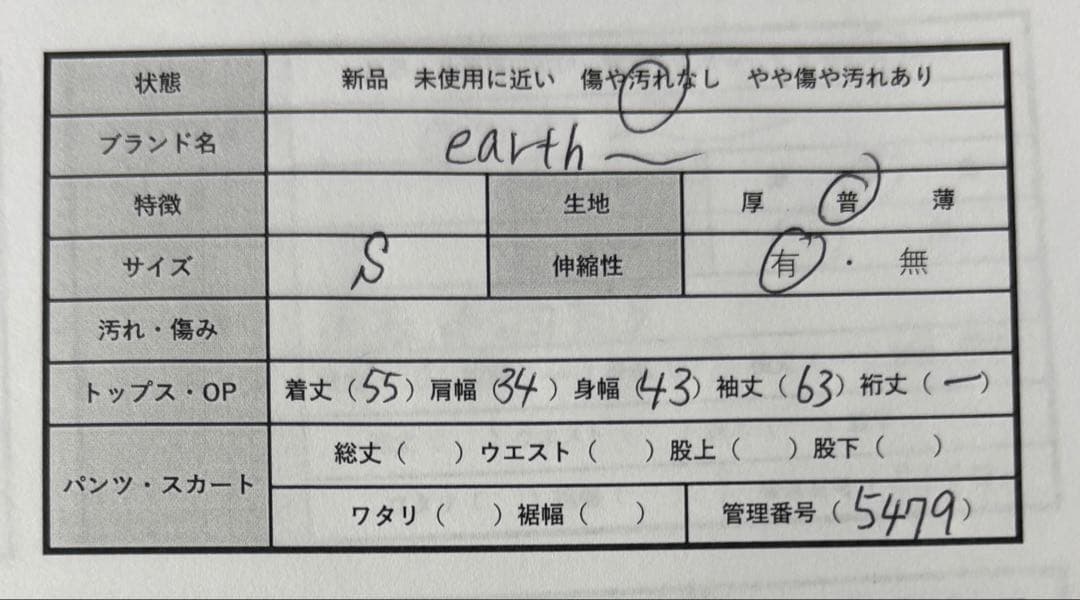 状態 新品 未使用に近い 傷や汚れなし やや傷や汚れあり
ブランド名 earth
特徴 生地 厚 普 薄
サイズ S 伸縮性 有・無
汚れ・傷み
トップス・OP 着丈（55）肩幅（34）身幅（43）袖丈（63）裄丈（ー）
パンツ・スカート 総丈（ ）ウエスト（ ）股上（ ）股下（ ）
ワタリ（ ）裾幅（ ） 管理番号（5479）